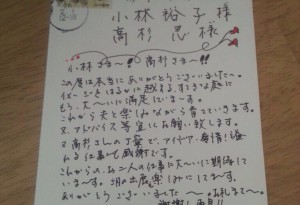 小林裕子様
高杉 忍様
小林さま〜!! 高杉さま〜!!
この度は本当にありがとうございました〜。
イメージをはるかに越えるすてきな庭に
もう、大〜いに満足しています。
これから夫と楽しみながら育てていきます。
又アドバイス等宜しくお願い致します。
又高杉さんの丁寧で、アイデア・愛情溢れる
仕事も感謝です。
これからのお二人の仕事に大〜いに期待して
います。
楽しみにしてます。
ありがとうございました〜。